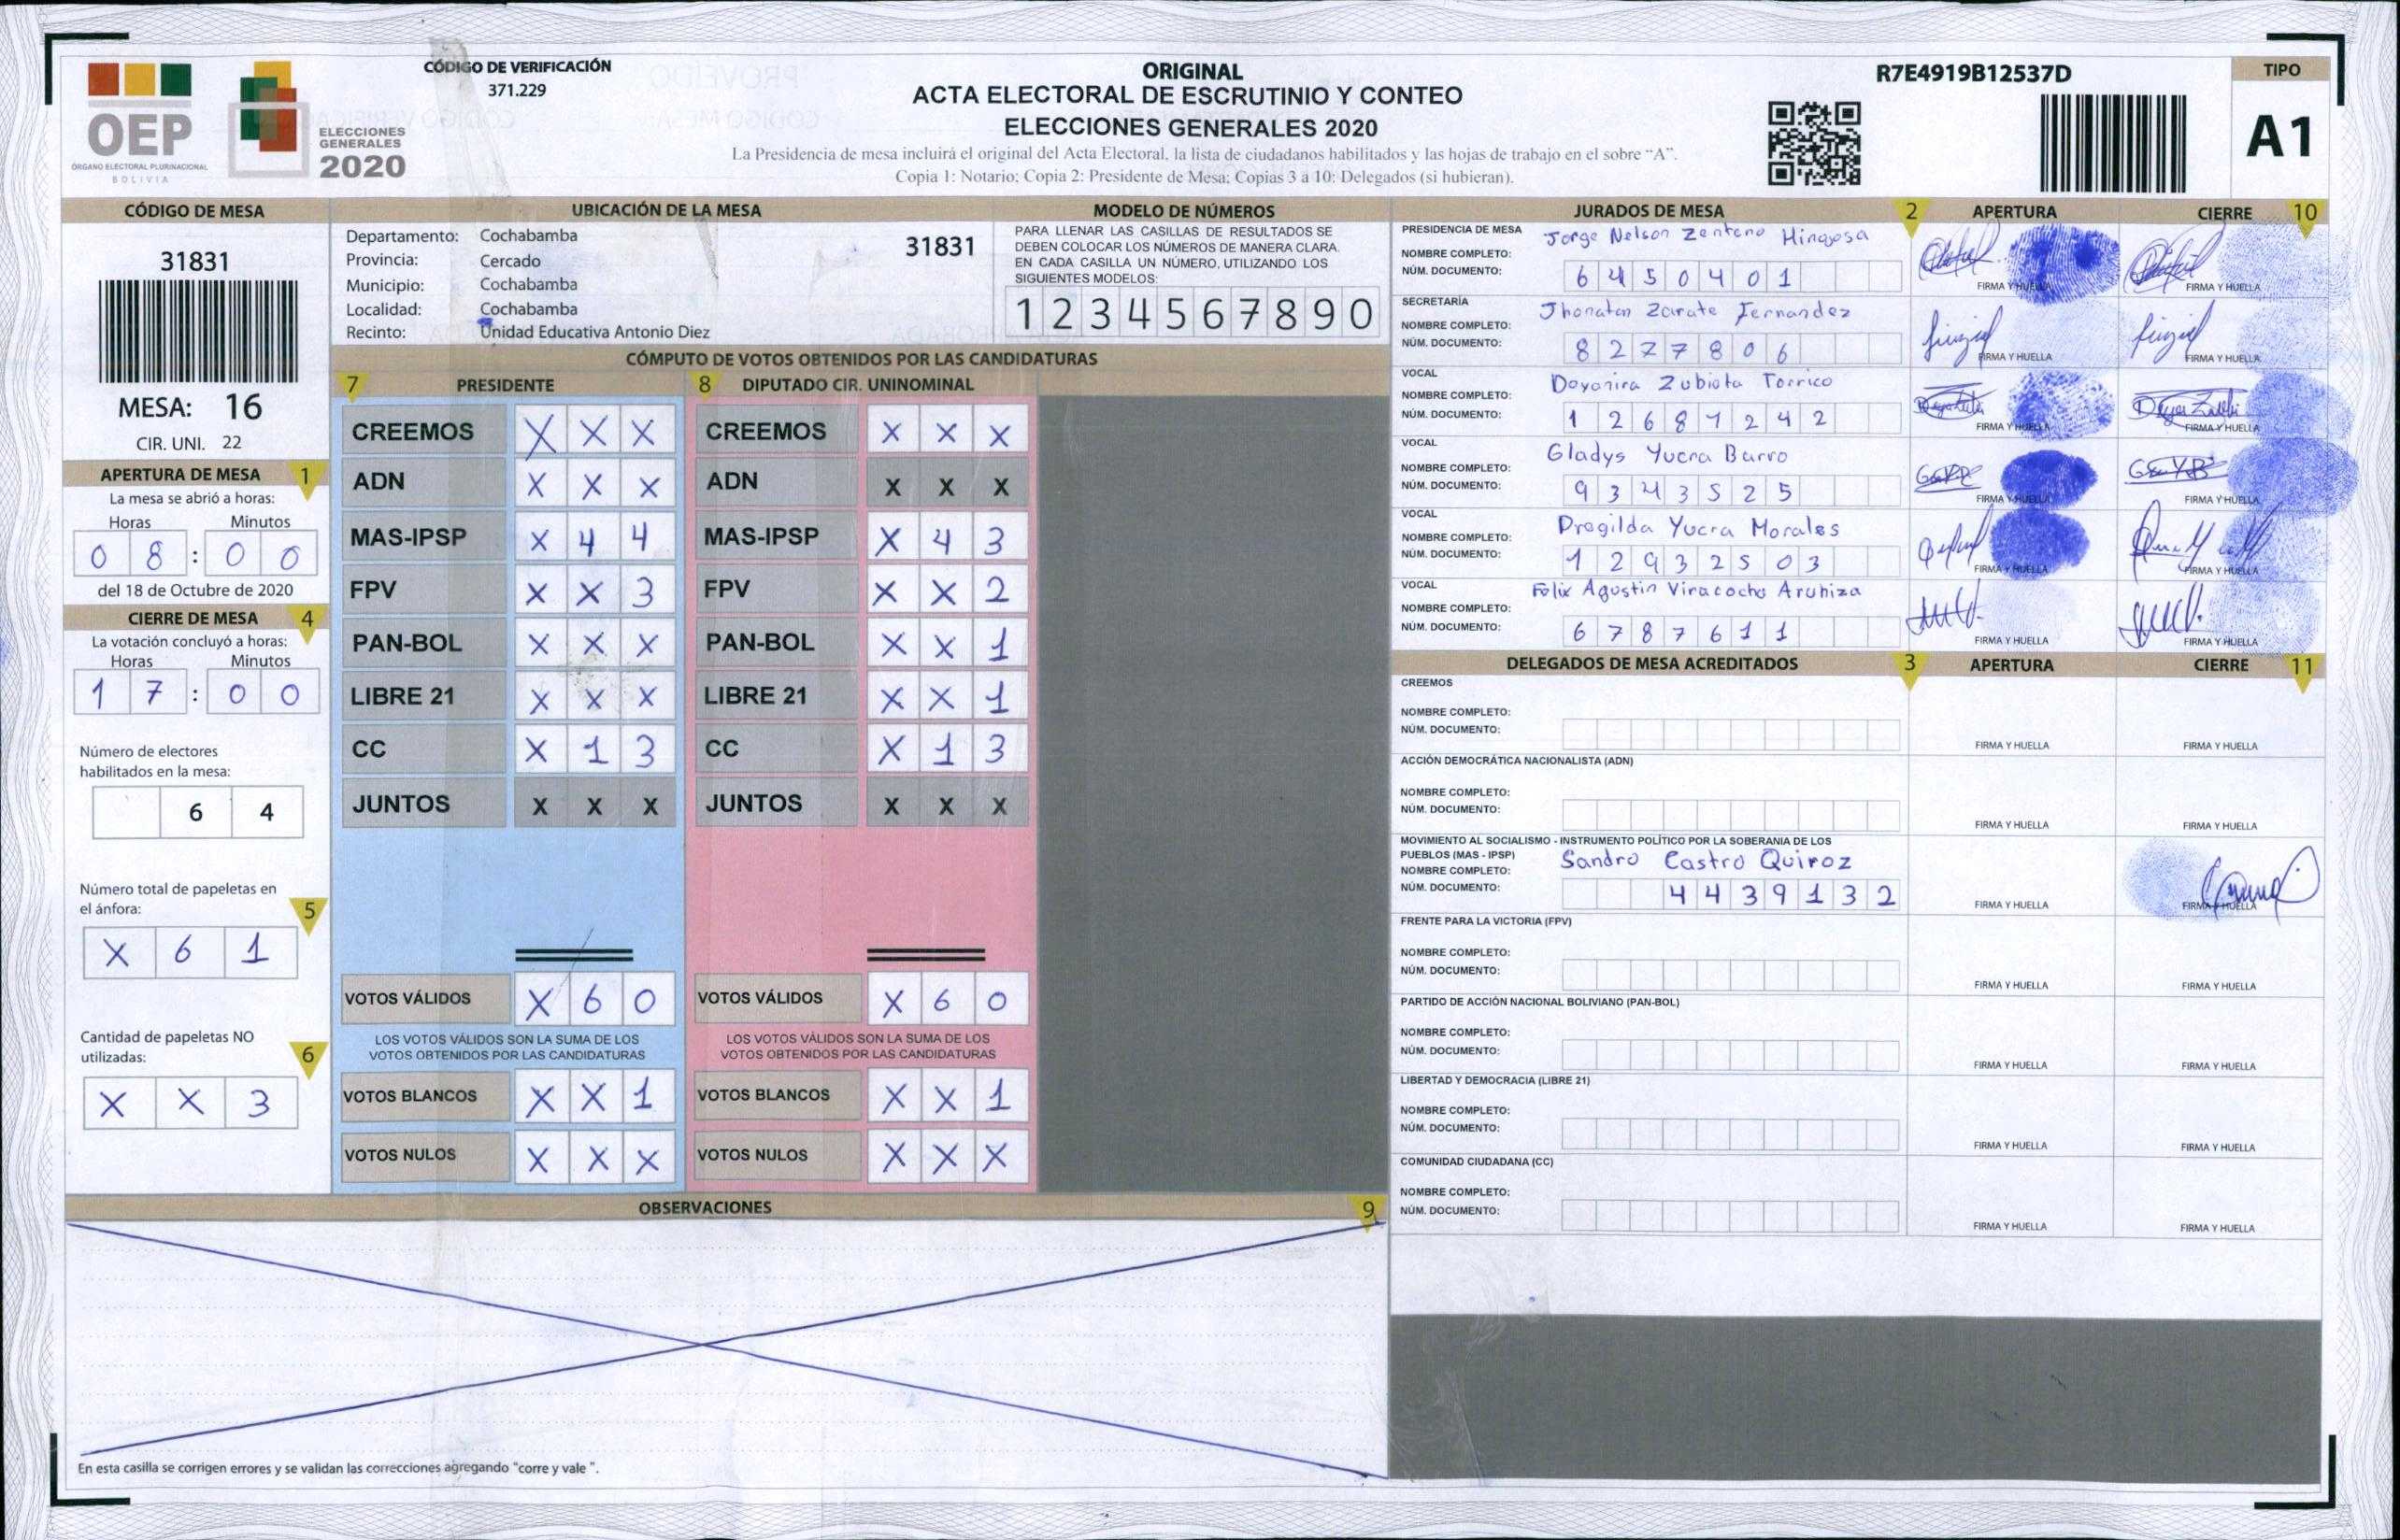 CÓDIGO DE VERIFICACIÓN
371.229
OEP
ÓRGANO ELECTORAL PLURINACIONAL
BOLIVIA
ELECCIONES
GENERALES
2020
ORIGINAL
ACTA ELECTORAL DE ESCRUTINIO Y CONTEO
ELECCIONES GENERALES 2020
La Presidencia de mesa incluirá el original del Acta Electoral, la lista de ciudadanos habilitados y las hojas de trabajo en el sobre “A”.
Copia 1: Notario; Copia 2: Presidente de Mesa; Copias 3 a 10: Delegados (si hubieran).
R7E4919B12537D
TIPO
A1
CÓDIGO DE MESA
31831
MESA: 16
CIR. UNI. 22
APERTURA DE MESA 1
La mesa se abrió a horas:
Horas Minutos
0 8 : 0 0
del 18 de Octubre de 2020
CIERRE DE MESA 4
La votación concluyó a horas:
Horas Minutos
1 7 : 0 0
Número de electores
habilitados en la mesa:
6 4
Número total de papeletas en
el ánfora: 5
X 6 1
Cantidad de papeletas NO
utilizadas: 6
X X 3
UBICACIÓN DE LA MESA
Departamento: Cochabamba 31831
Provincia: Cercado
Municipio: Cochabamba
Localidad: Cochabamba
Recinto: Unidad Educativa Antonio Diez
MODELO DE NÚMEROS
PARA LLENAR LAS CASILLAS DE RESULTADOS SE
DEBEN COLOCAR LOS NÚMEROS DE MANERA CLARA.
EN CADA CASILLA UN NÚMERO, UTILIZANDO LOS
SIGUIENTES MODELOS:
1 2 3 4 5 6 7 8 9 0
CÓMPUTO DE VOTOS OBTENIDOS POR LAS CANDIDATURAS
7 PRESIDENTE 8 DIPUTADO CIR. UNINOMINAL
CREEMOS X X X CREEMOS X X X
ADN X X X ADN X X X
MAS-IPSP X 4 4 MAS-IPSP X 4 3
FPV X X 3 FPV X X 2
PAN-BOL X X X PAN-BOL X X 1
LIBRE 21 X X X LIBRE 21 X X 1
CC X 1 3 CC X 1 3
JUNTOS X X X JUNTOS X X X
VOTOS VÁLIDOS X 6 0 VOTOS VÁLIDOS X 6 0
LOS VOTOS VÁLIDOS SON LA SUMA DE LOS LOS VOTOS VÁLIDOS SON LA SUMA DE LOS
VOTOS OBTENIDOS POR LAS CANDIDATURAS VOTOS OBTENIDOS POR LAS CANDIDATURAS
VOTOS BLANCOS X X 1 VOTOS BLANCOS X X 1
VOTOS NULOS X X X VOTOS NULOS X X X
OBSERVACIONES 9
En esta casilla se corrigen errores y se validan las correcciones agregando "corre y vale ".
JURADOS DE MESA 2 APERTURA CIERRE 10
PRESIDENCIA DE MESA Jorge Nelson Zenteno Hinojosa
NOMBRE COMPLETO:
NÚM. DOCUMENTO: 6 4 5 0 4 0 1
FIRMA Y HUELLA FIRMA Y HUELLA
SECRETARÍA Jhonatan Zarate Fernandez
NOMBRE COMPLETO:
NÚM. DOCUMENTO: 8 2 7 7 8 0 6
FIRMA Y HUELLA FIRMA Y HUELLA
VOCAL Dayanira Zubieta Torrico
NOMBRE COMPLETO:
NÚM. DOCUMENTO: 1 2 6 8 7 2 4 2
FIRMA Y HUELLA FIRMA Y HUELLA
VOCAL Gladys Yucra Barro
NOMBRE COMPLETO:
NÚM. DOCUMENTO: 9 3 4 3 5 2 5
FIRMA Y HUELLA FIRMA Y HUELLA
VOCAL Drogilda Yucra Morales
NOMBRE COMPLETO:
NÚM. DOCUMENTO: 1 2 9 3 2 5 0 3
FIRMA Y HUELLA FIRMA Y HUELLA
VOCAL Felix Agustin Viracocha Aruhiza
NOMBRE COMPLETO:
NÚM. DOCUMENTO: 6 7 8 7 6 1 1
FIRMA Y HUELLA FIRMA Y HUELLA
DELEGADOS DE MESA ACREDITADOS 3 APERTURA CIERRE 11
CREEMOS
NOMBRE COMPLETO:
NÚM. DOCUMENTO:
FIRMA Y HUELLA FIRMA Y HUELLA
ACCIÓN DEMOCRÁTICA NACIONALISTA (ADN)
NOMBRE COMPLETO:
NÚM. DOCUMENTO:
FIRMA Y HUELLA FIRMA Y HUELLA
MOVIMIENTO AL SOCIALISMO - INSTRUMENTO POLÍTICO POR LA SOBERANIA DE LOS
PUEBLOS (MAS - IPSP) Sandro Castro Quiroz
NOMBRE COMPLETO:
NÚM. DOCUMENTO: 4 4 3 9 1 3 2
FIRMA Y HUELLA FIRMA Y HUELLA
FRENTE PARA LA VICTORIA (FPV)
NOMBRE COMPLETO:
NÚM. DOCUMENTO:
FIRMA Y HUELLA FIRMA Y HUELLA
PARTIDO DE ACCIÓN NACIONAL BOLIVIANO (PAN-BOL)
NOMBRE COMPLETO:
NÚM. DOCUMENTO:
FIRMA Y HUELLA FIRMA Y HUELLA
LIBERTAD Y DEMOCRACIA (LIBRE 21)
NOMBRE COMPLETO:
NÚM. DOCUMENTO:
FIRMA Y HUELLA FIRMA Y HUELLA
COMUNIDAD CIUDADANA (CC)
NOMBRE COMPLETO:
NÚM. DOCUMENTO:
FIRMA Y HUELLA FIRMA Y HUELLA